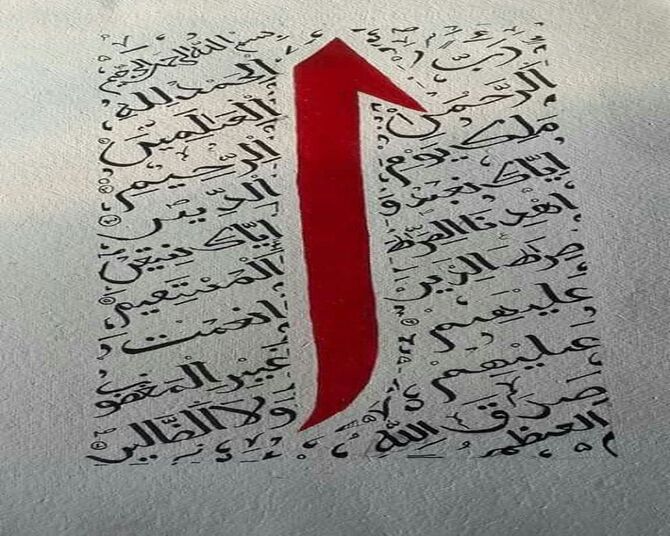 بسم الله الرحمن الرحيم
الحمد لله
رب العلمين
الرحمن الرحيم
ملك يوم الدين
اياك نعبد و اياك نستعين
اهدنا الصراط المستقيم
صراط الذين انعمت
عليهم غير المغضوب
عليهم ولا الضالين
صدق الله
العظيم